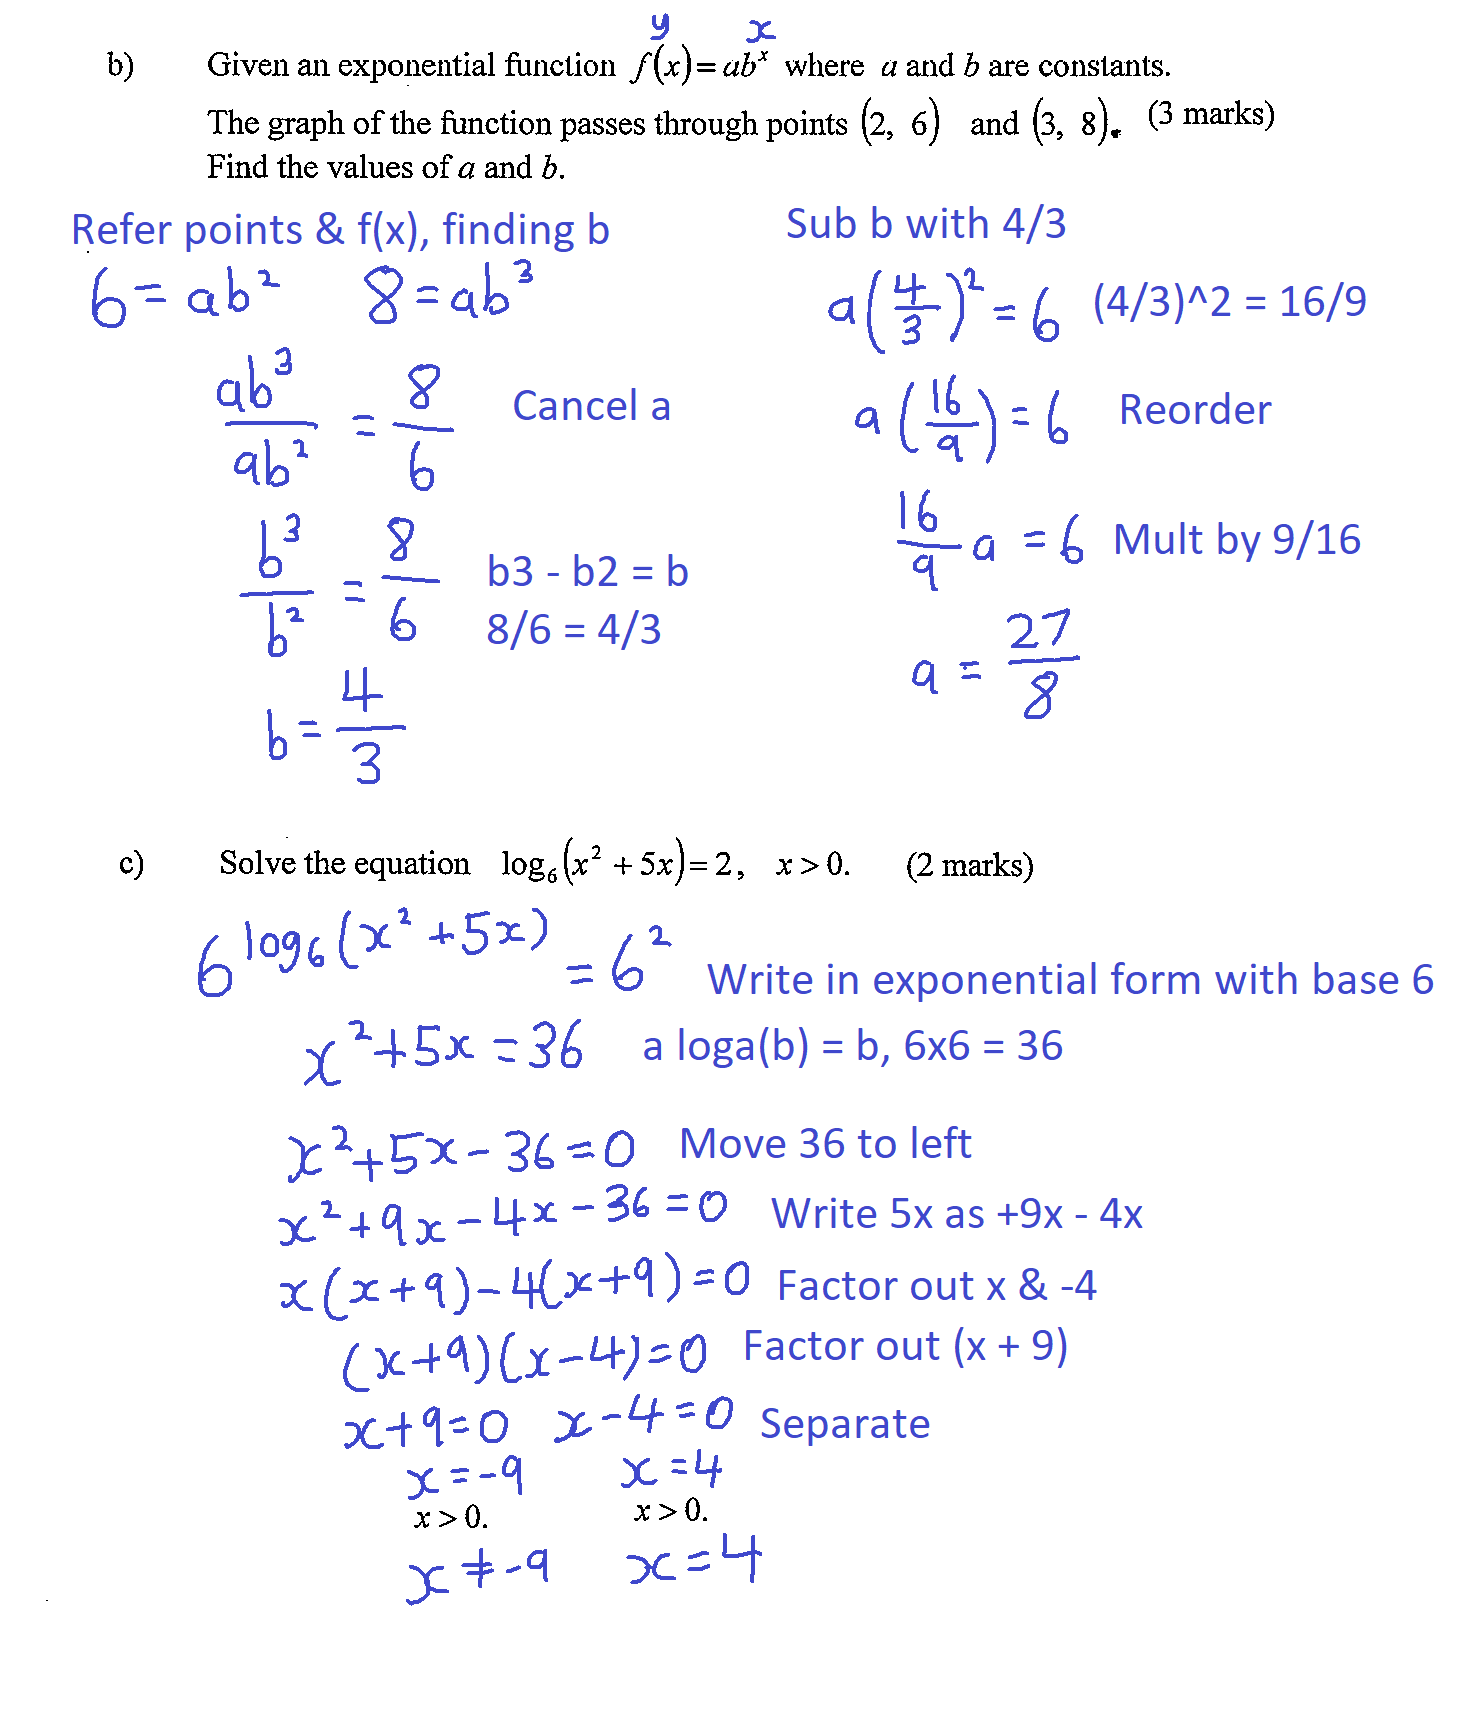 y x
b) Given an exponential function f(x)=ab^x where a and b are constants.
The graph of the function passes through points (2, 6) and (3, 8). (3 marks)
Find the values of a and b.
Refer points & f(x), finding b
6 = ab² 8 = ab³
ab³/ab² = 8/6 Cancel a
b³/b² = 8/6 b3 - b2 = b
8/6 = 4/3
b = 4/3
Sub b with 4/3
a(4/3)² = 6 (4/3)^2 = 16/9
a(16/9) = 6 Reorder
16/9 a = 6 Mult by 9/16
a = 27/8
c) Solve the equation log₆(x² + 5x) = 2, x > 0. (2 marks)
6^log₆(x² + 5x) = 6² Write in exponential form with base 6
x² + 5x = 36 a loga(b) = b, 6x6 = 36
x² + 5x - 36 = 0 Move 36 to left
x² + 9x - 4x - 36 = 0 Write 5x as +9x - 4x
x(x + 9) - 4(x + 9) = 0 Factor out x & -4
(x + 9)(x - 4) = 0 Factor out (x + 9)
x + 9 = 0 x - 4 = 0 Separate
x = -9 x = 4
x > 0. x > 0.
x ≠ -9 x = 4